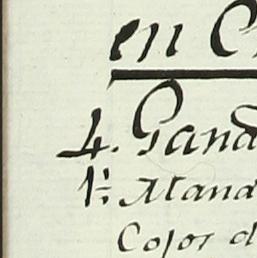 en C
4. Gana
1ª: Mana
Color d